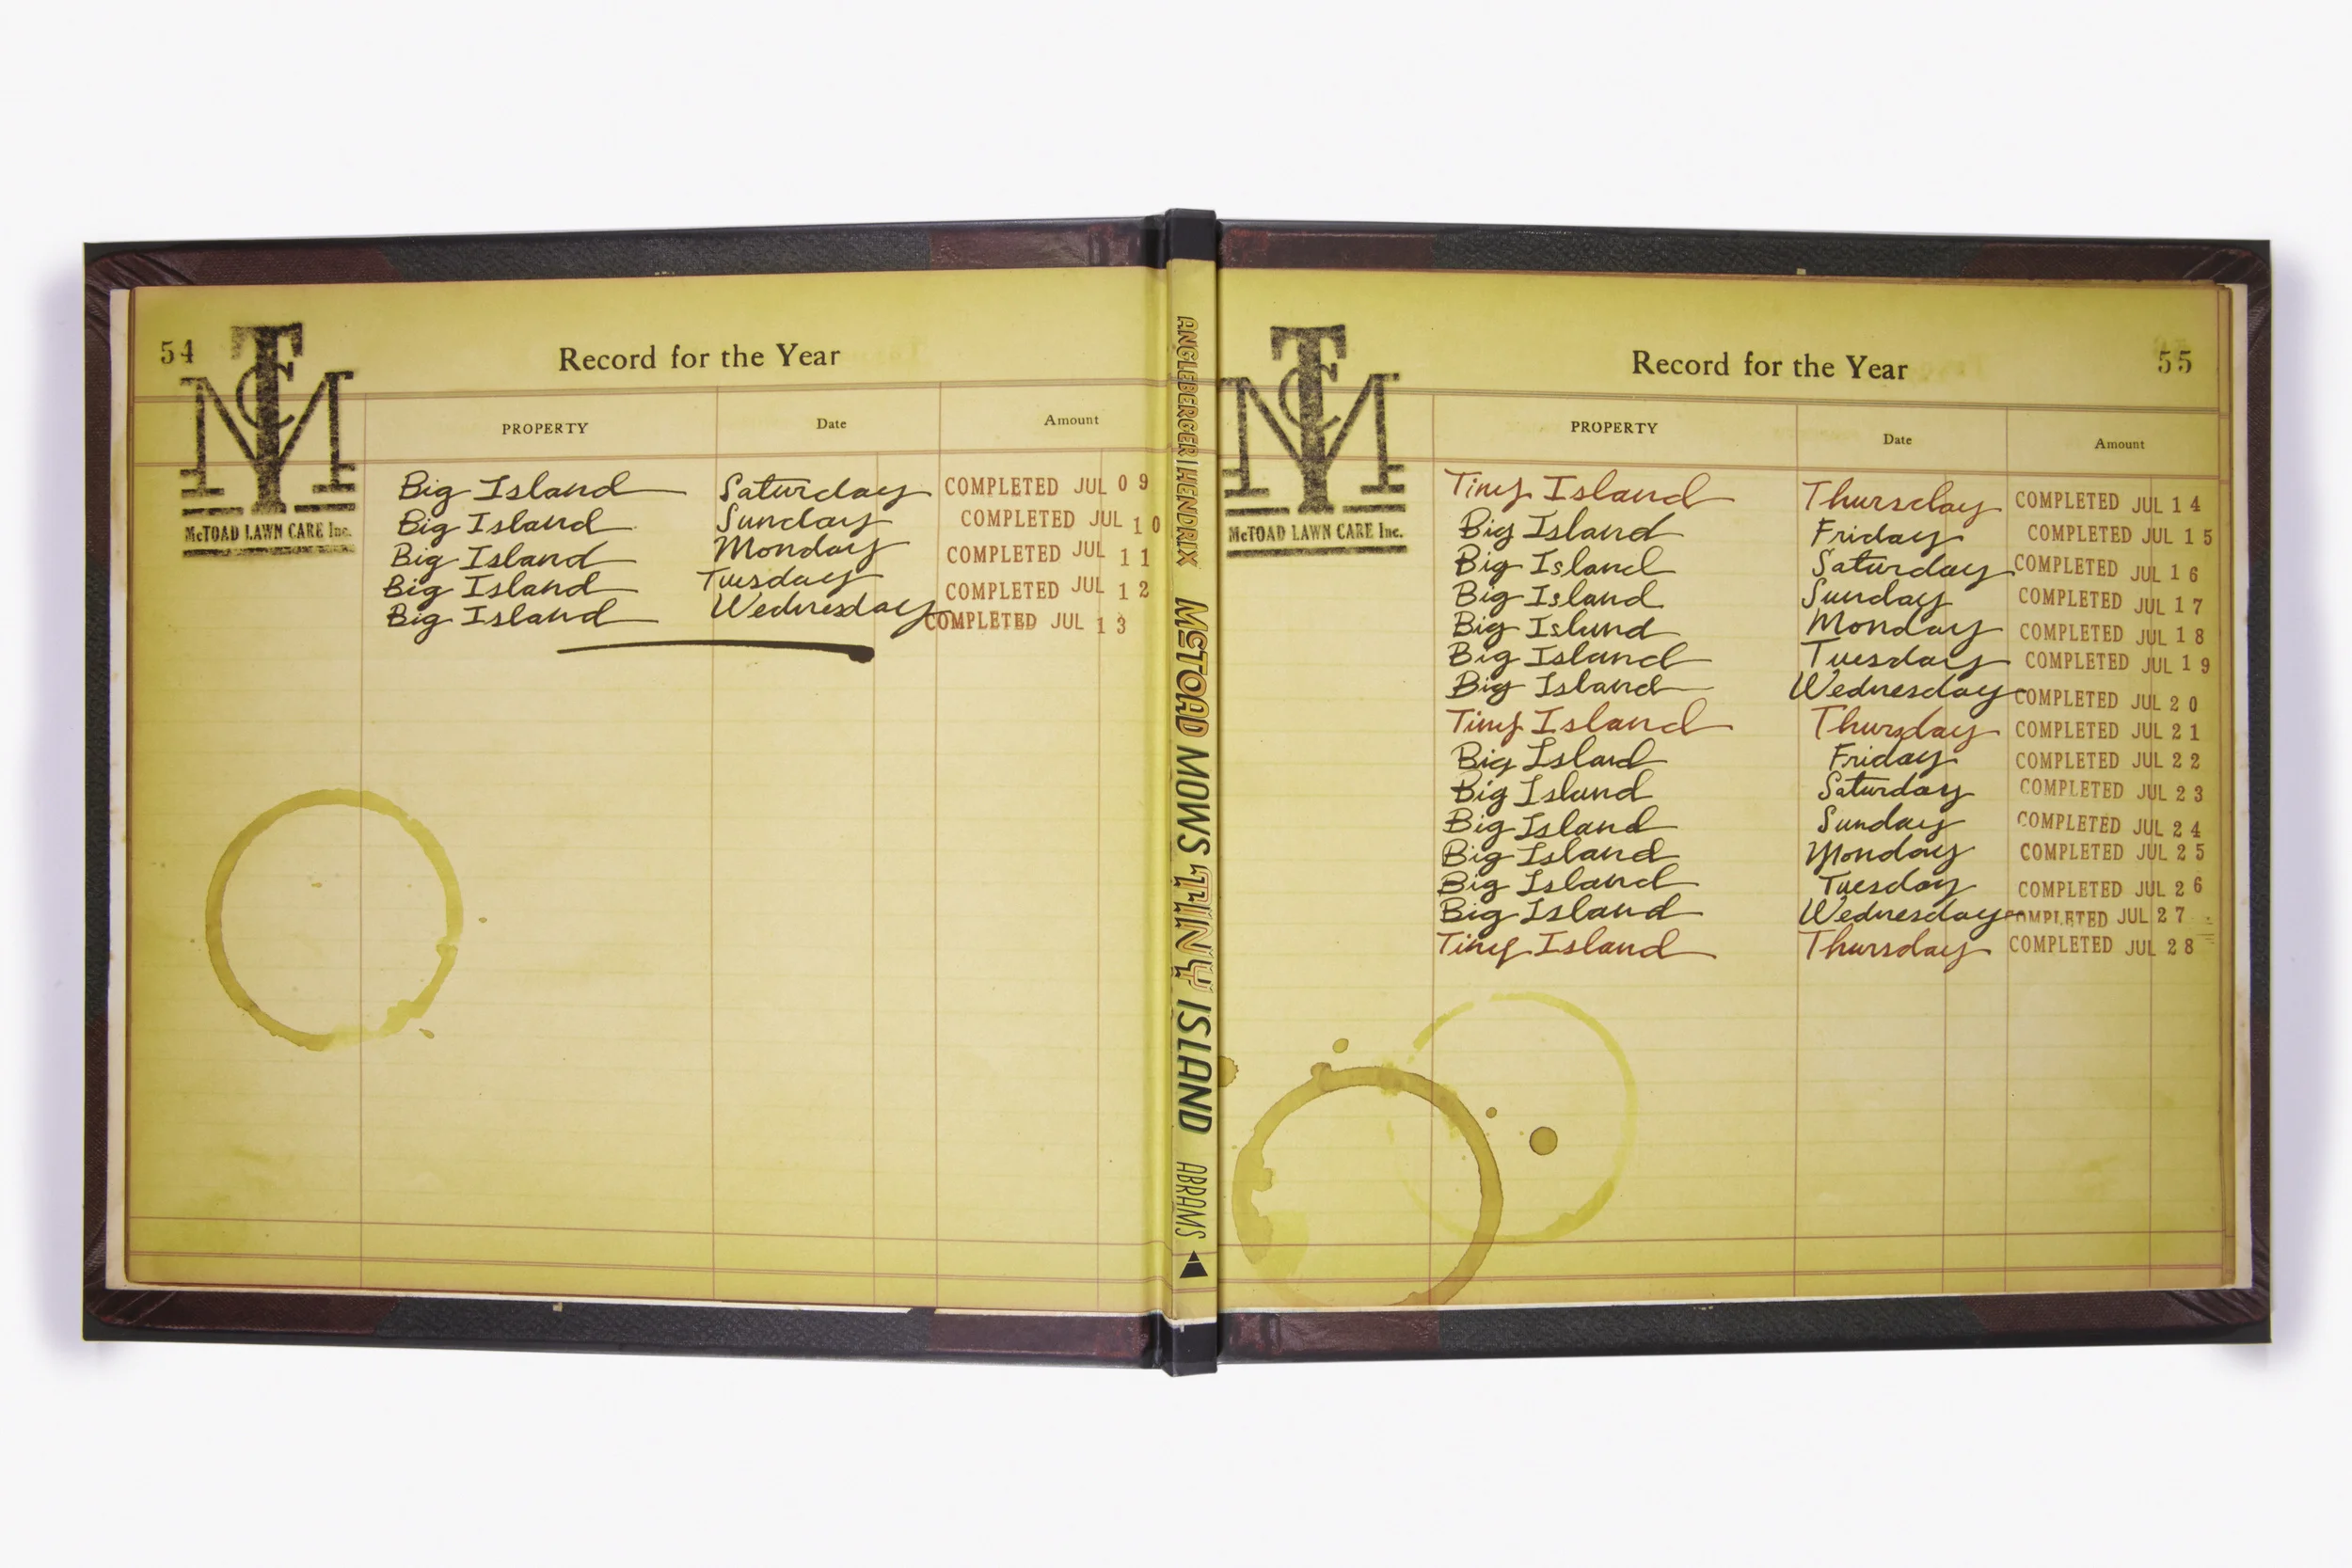 54
TMC
McTOAD LAWN CARE Inc.
Record for the Year
PROPERTY Date Amount
Big Island Saturday COMPLETED JUL 09
Big Island Sunday COMPLETED JUL 10
Big Island Monday COMPLETED JUL 11
Big Island Tuesday COMPLETED JUL 12
Big Island Wednesday COMPLETED JUL 13
ANGLEBERGER | HENDRIX McTOAD MOWS TINY ISLAND ABRAMS
TMC
McTOAD LAWN CARE Inc.
Record for the Year
55
PROPERTY Date Amount
Tiny Island Thursday COMPLETED JUL 14
Big Island Friday COMPLETED JUL 15
Big Island Saturday COMPLETED JUL 16
Big Island Sunday COMPLETED JUL 17
Big Island Monday COMPLETED JUL 18
Big Island Tuesday COMPLETED JUL 19
Big Island Wednesday COMPLETED JUL 20
Tiny Island Thursday COMPLETED JUL 21
Big Island Friday COMPLETED JUL 22
Big Island Saturday COMPLETED JUL 23
Big Island Sunday COMPLETED JUL 24
Big Island Monday COMPLETED JUL 25
Big Island Tuesday COMPLETED JUL 26
Big Island Wednesday COMPLETED JUL 27
Tiny Island Thursday COMPLETED JUL 28